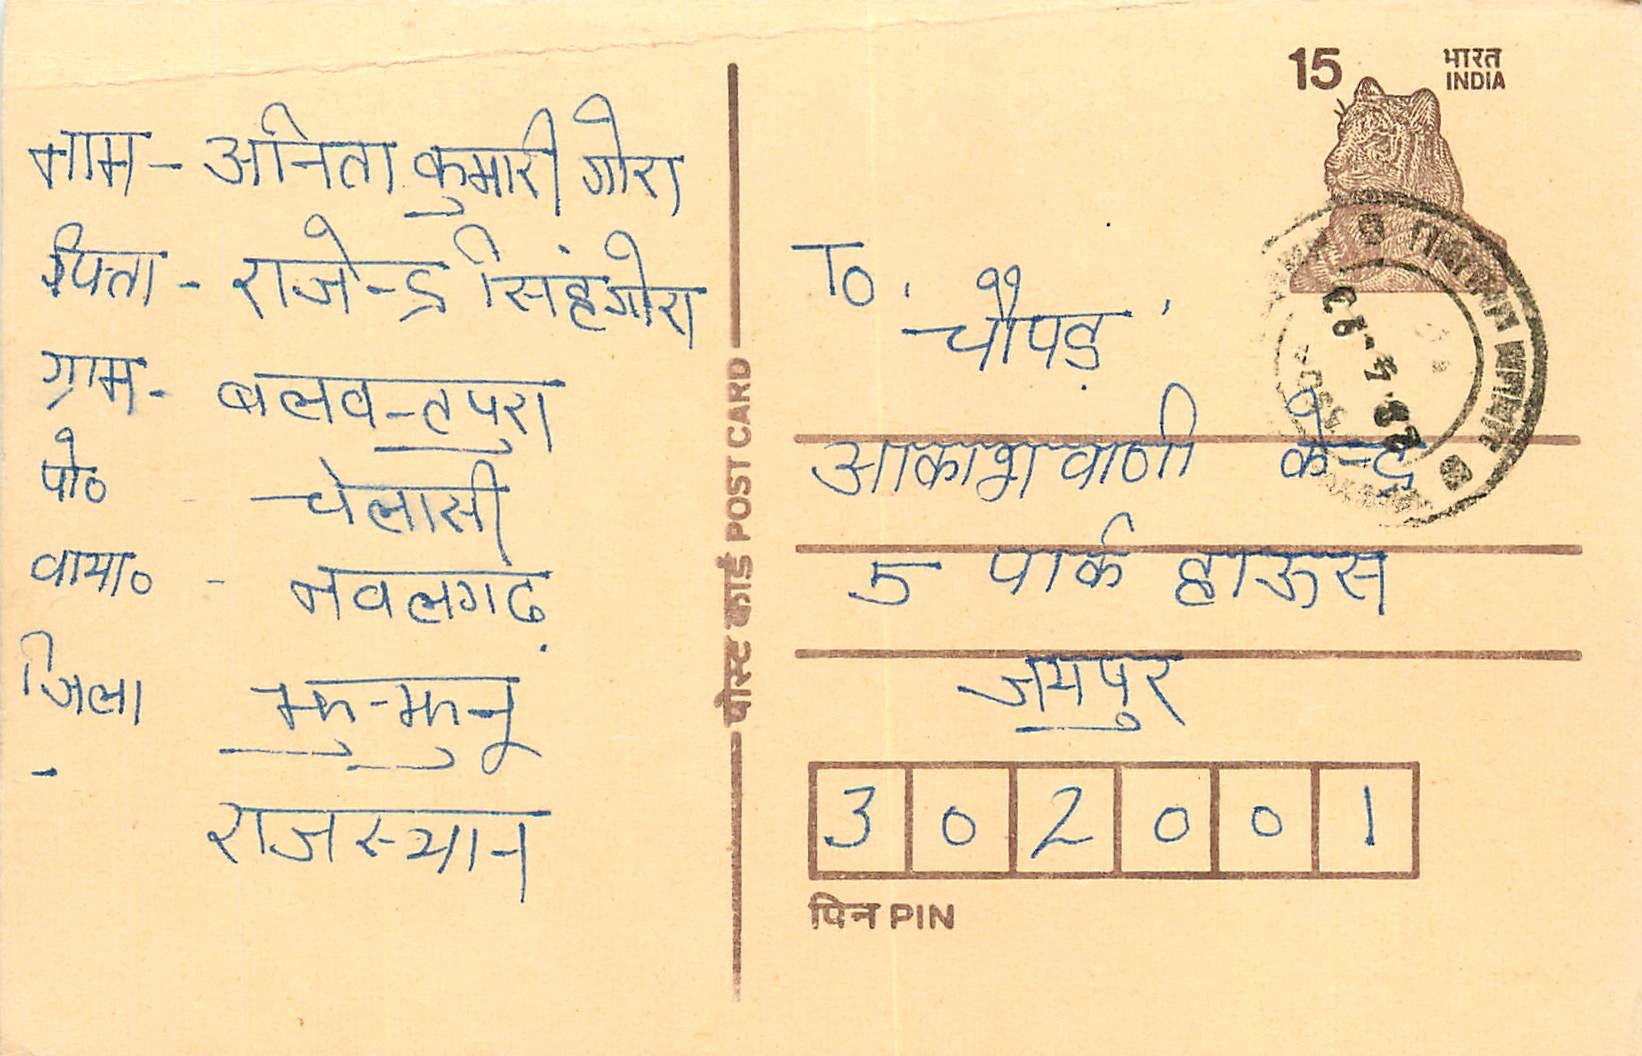 15 भारत
INDIA
नाम - अनिता कुमारी गोरा
पिता - राजेन्द्र सिंह गोरा
ग्राम - बलवन्तपुरा
पो० - चेलासी
वाया० - नवलगढ़
जिला झुन्झुनू
राजस्थान
पोस्ट कार्ड POST CARD
To,
चौपड़,
आकाशवाणी केन्द्र
5 पार्क हाऊस
जयपुर
302001
पिन PIN